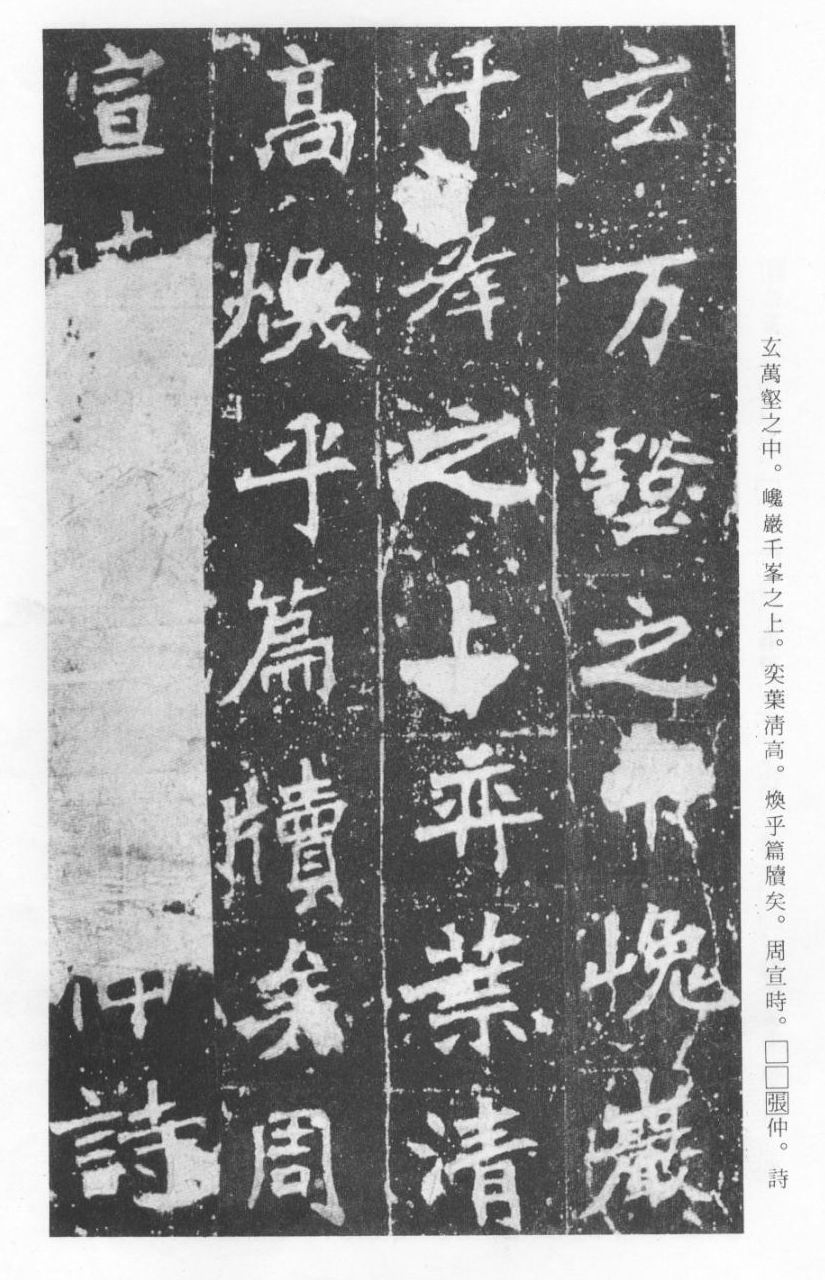 玄萬壑之中。巉巖千峯之上。奕葉淸高。煥乎篇牘矣。周宣時。□□張仲。詩
玄万壑之巉巖
千峯之上弈葉清
高煥乎篇牘矣周
宣仲詩